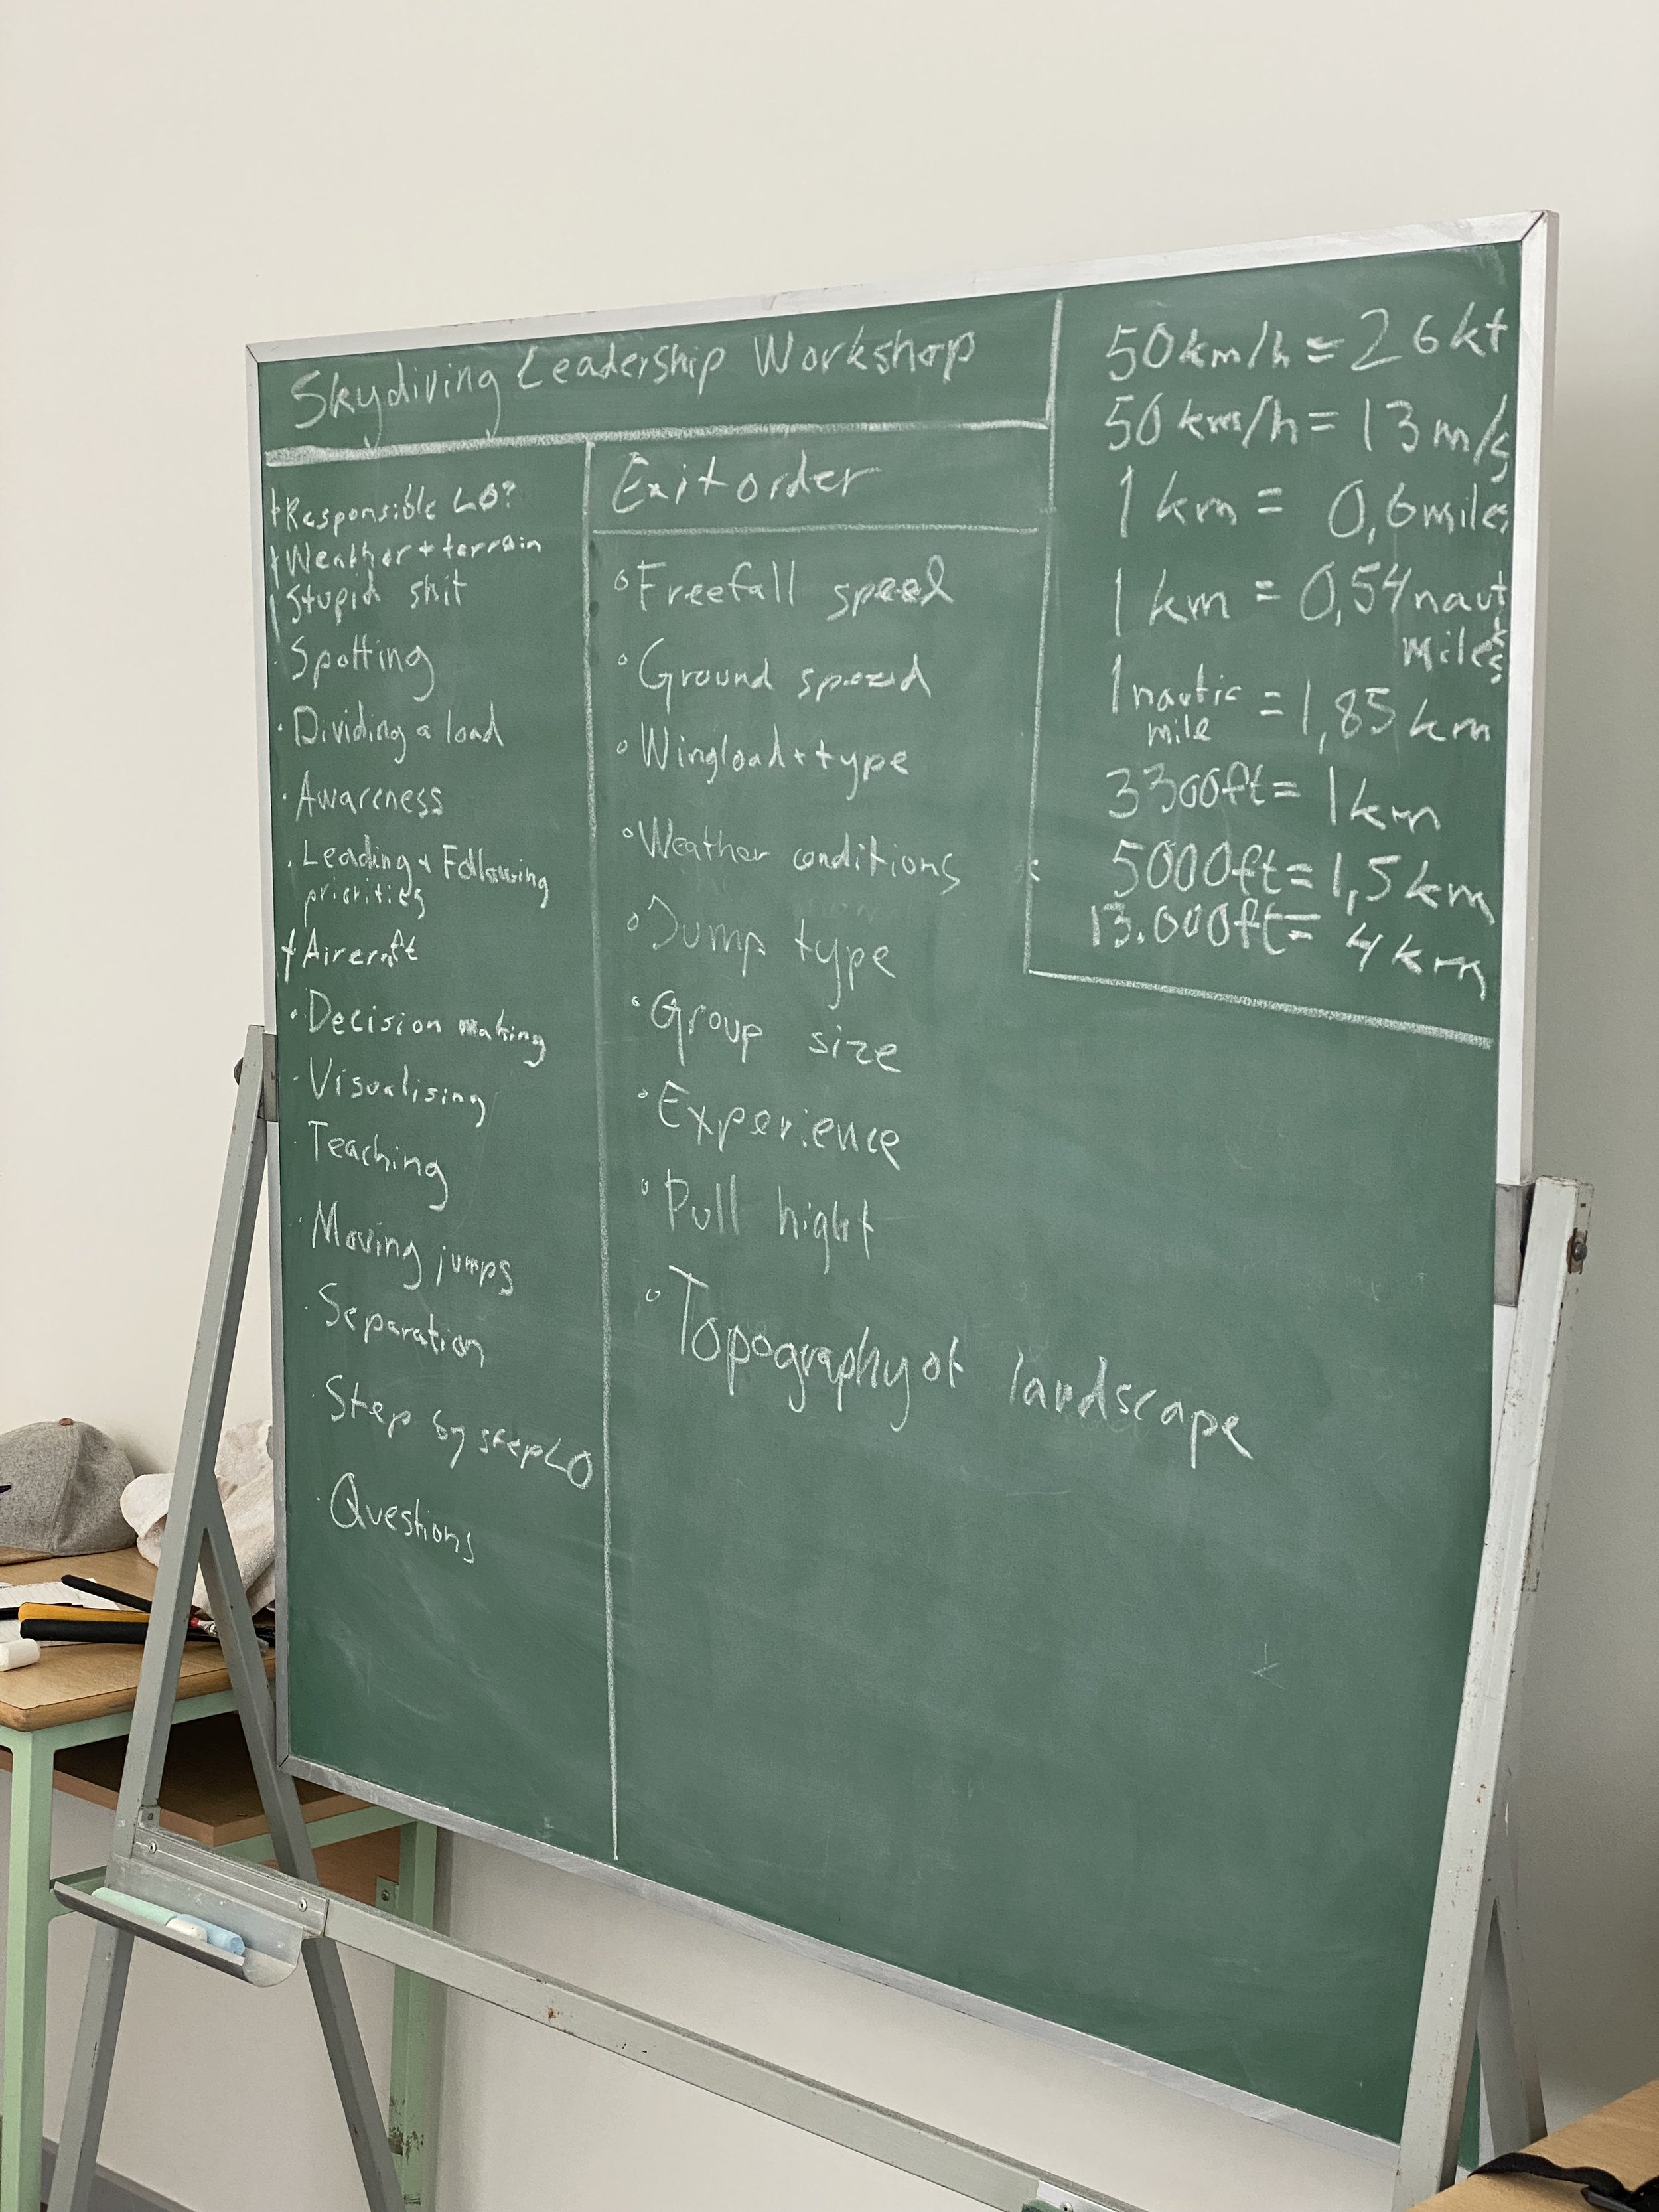 Skydiving Leadership Workshop
+ Responsible LO?
+ Weather + terrain
Stupid shit
· Spotting
· Dividing a load
· Awareness
· Leading + Following
priorities
+ Aircraft
· Decision making
· Visualising
· Teaching
· Moving jumps
· Separation
· Step by step LO
· Questions
Exit order
° Freefall speed
° Ground speed
° Wingload + type
° Weather conditions
° Jump type
° Group size
° Experience
° Pull hight
° Topography of landscape
50 km/h = 26 kt
50 km/h = 13 m/s
1 km = 0,6 miles
1 km = 0,54 naut
miles
1 nautic
mile = 1,85 km
3300ft = 1 km
5000ft = 1,5 km
13.000ft = 4 km